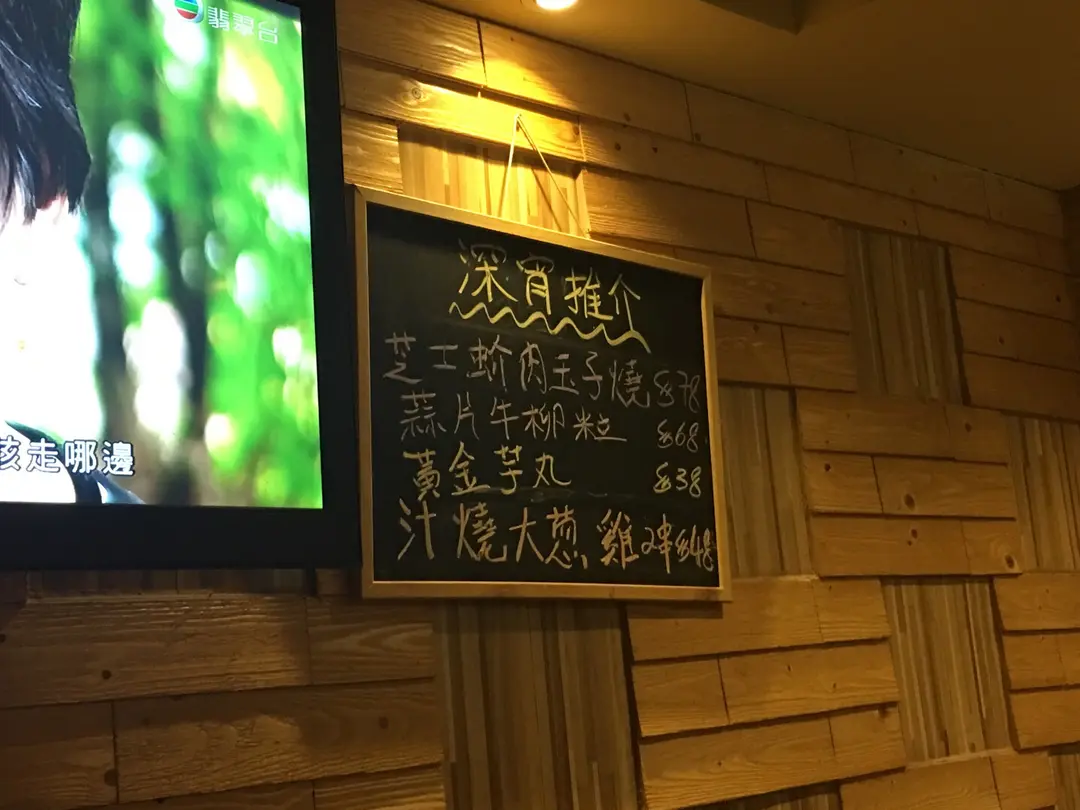 翡翠台
該走哪邊
深宵推介
芝士蚧肉玉子燒 $78
蒜片牛柳粒 $68
黃金芋丸 $38
汁燒大葱雞2串$48